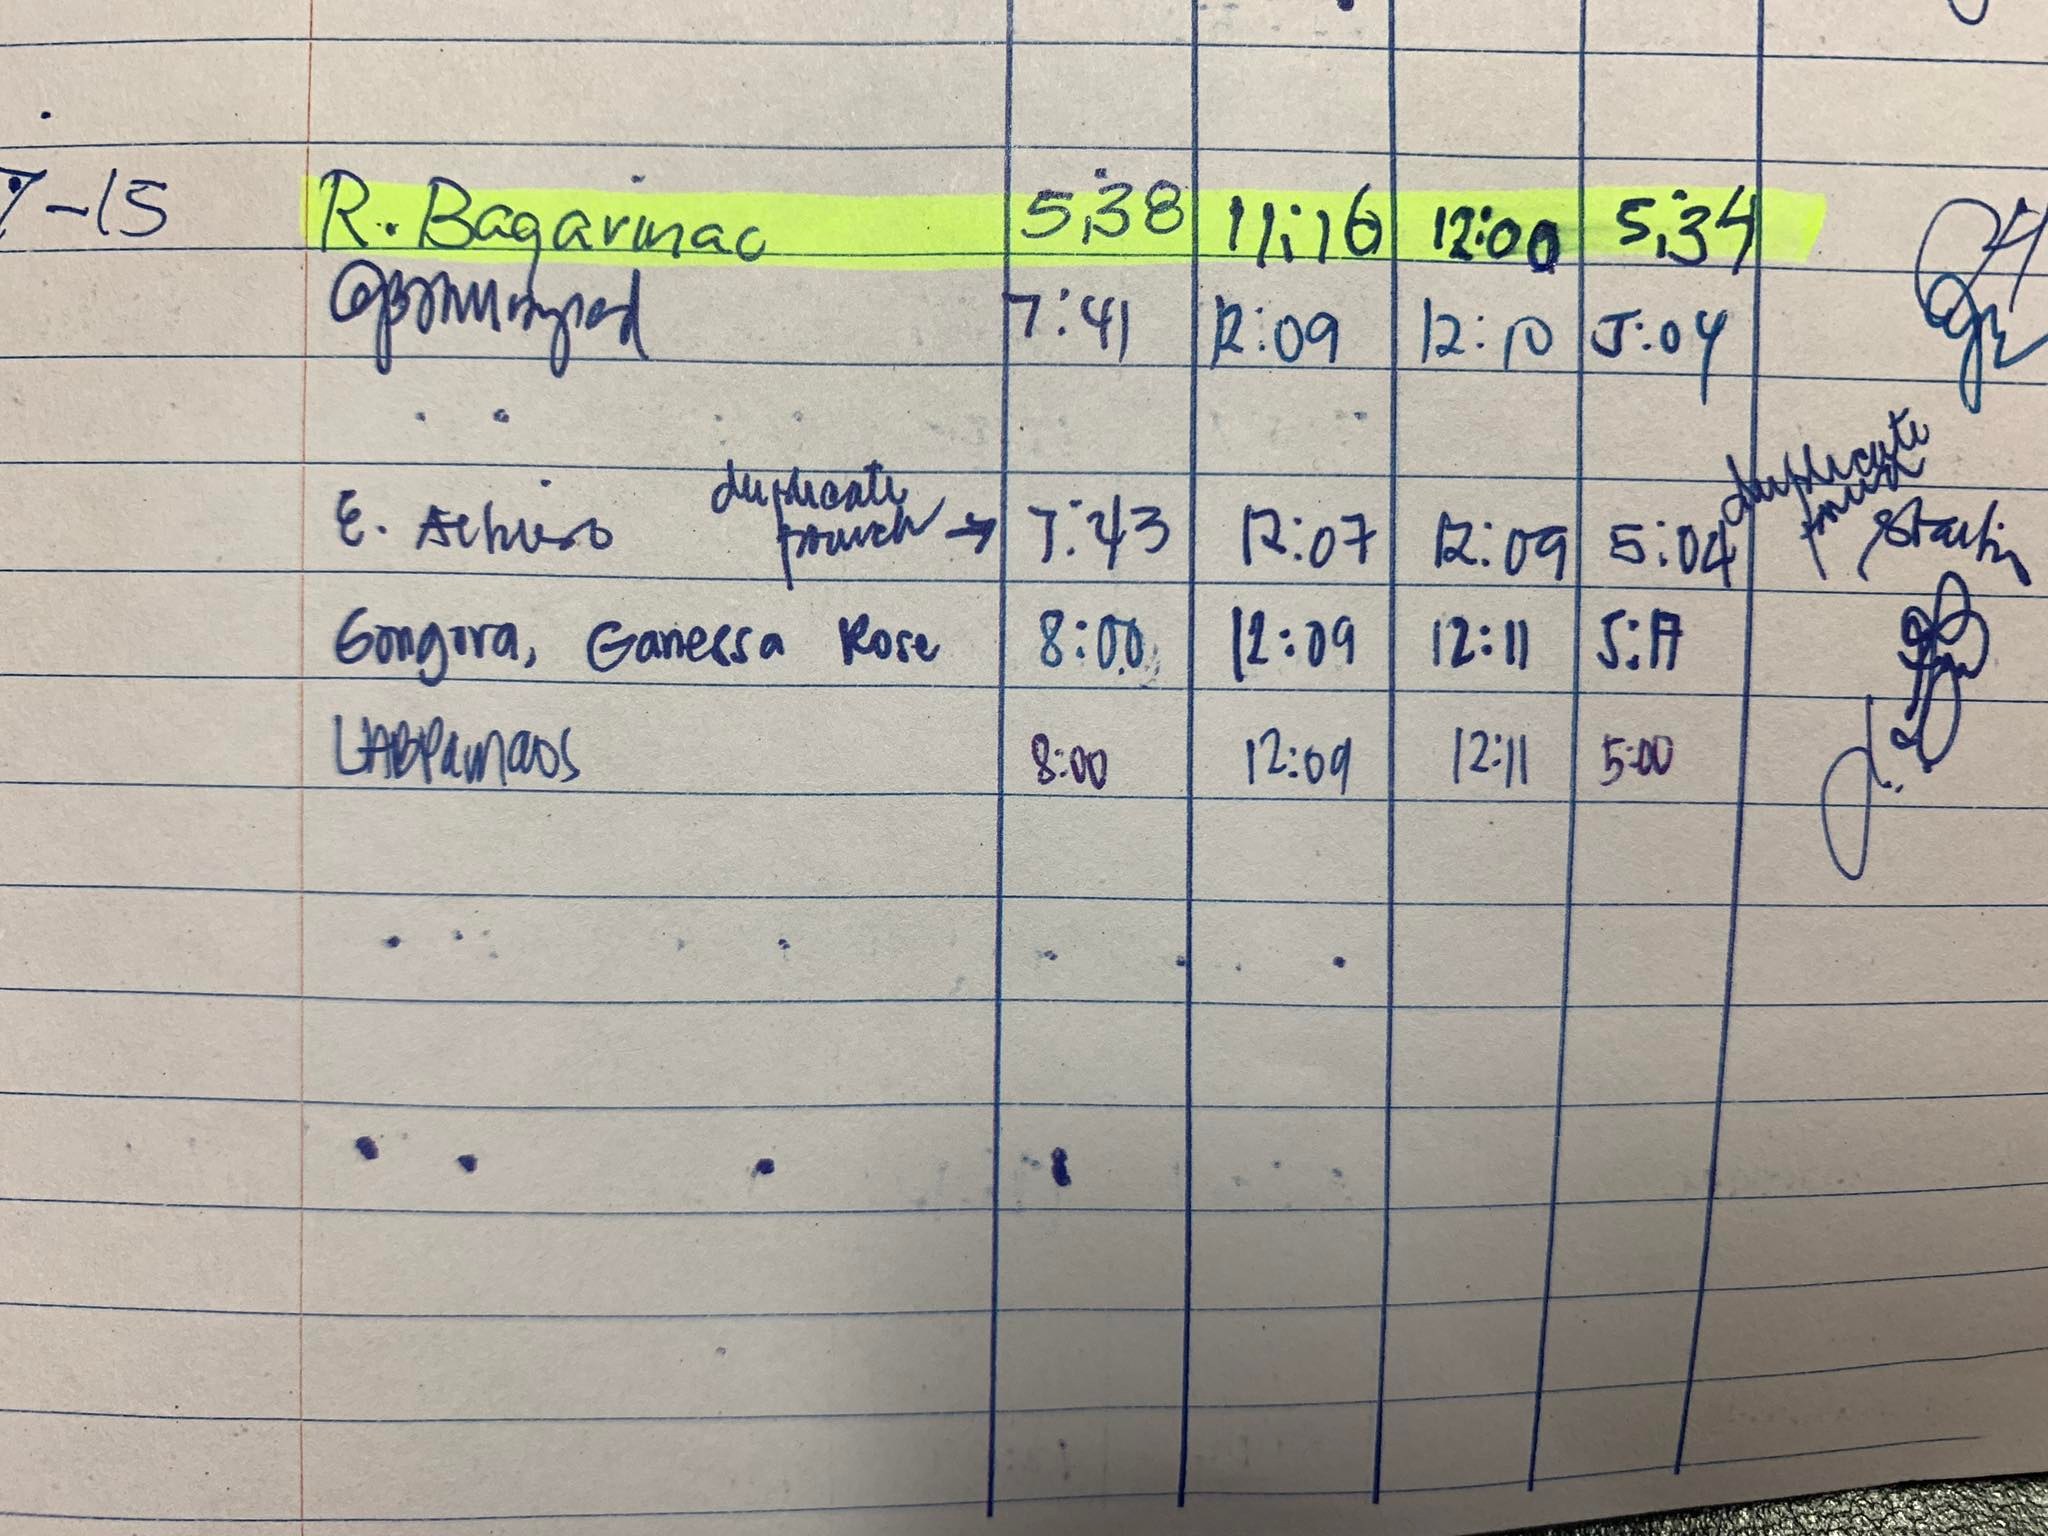 7-15 R. Bagarinao 5:38 11:16 12:00 5:34
7:41 12:09 12:10 5:04
E. duplicate punch → 7:43 12:07 12:09 5:04 duplicate punch
Gongora, Ganessa Rose 8:00 12:09 12:11 5:17
8:00 12:09 12:11 5:00